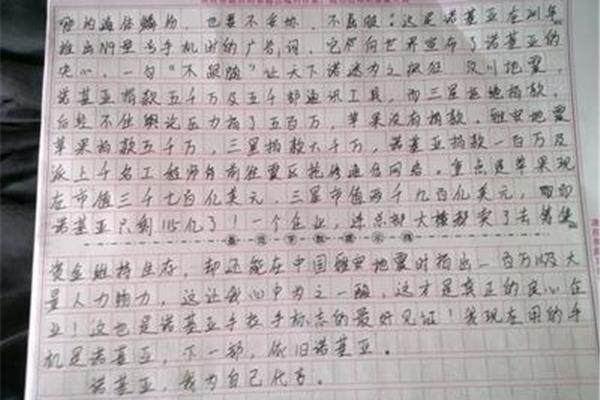 的遍体鳞伤，也要不手抖，不屈服！这是诺基亚在2011年
推出N9型号手机时的广告词，它仿向世界宣布了诺基亚的
决心，一句“不跟随”让天下诺迷为之疯狂 汶川地震，
诺基亚捐款五千万及五千部通讯工具，而三星拒绝捐款，
后经不住舆论压力捐了五百万，苹果没有捐款。雅安地震
苹果捐款五千万，三星捐款六千万，诺基亚捐款一百万及
派上千名工程师前往震区抢修通信网络。重点是苹果现
在市值三千七百亿美元，三星市值两千九百亿美元，而
诺基亚只剩115亿了！一个企业，连总部大楼都卖了去筹集
最低字数提示线
资金维持生存，却还能在中国雅安地震时捐出一百万以及大
量人力物力，这让我心中为之一酸，这才是真正的良心企
业！这也是诺基亚手拉手标志的最好见证！我现在用的手
机是诺基亚，下一部，依旧诺基亚。
诺基亚，我为自己代言。